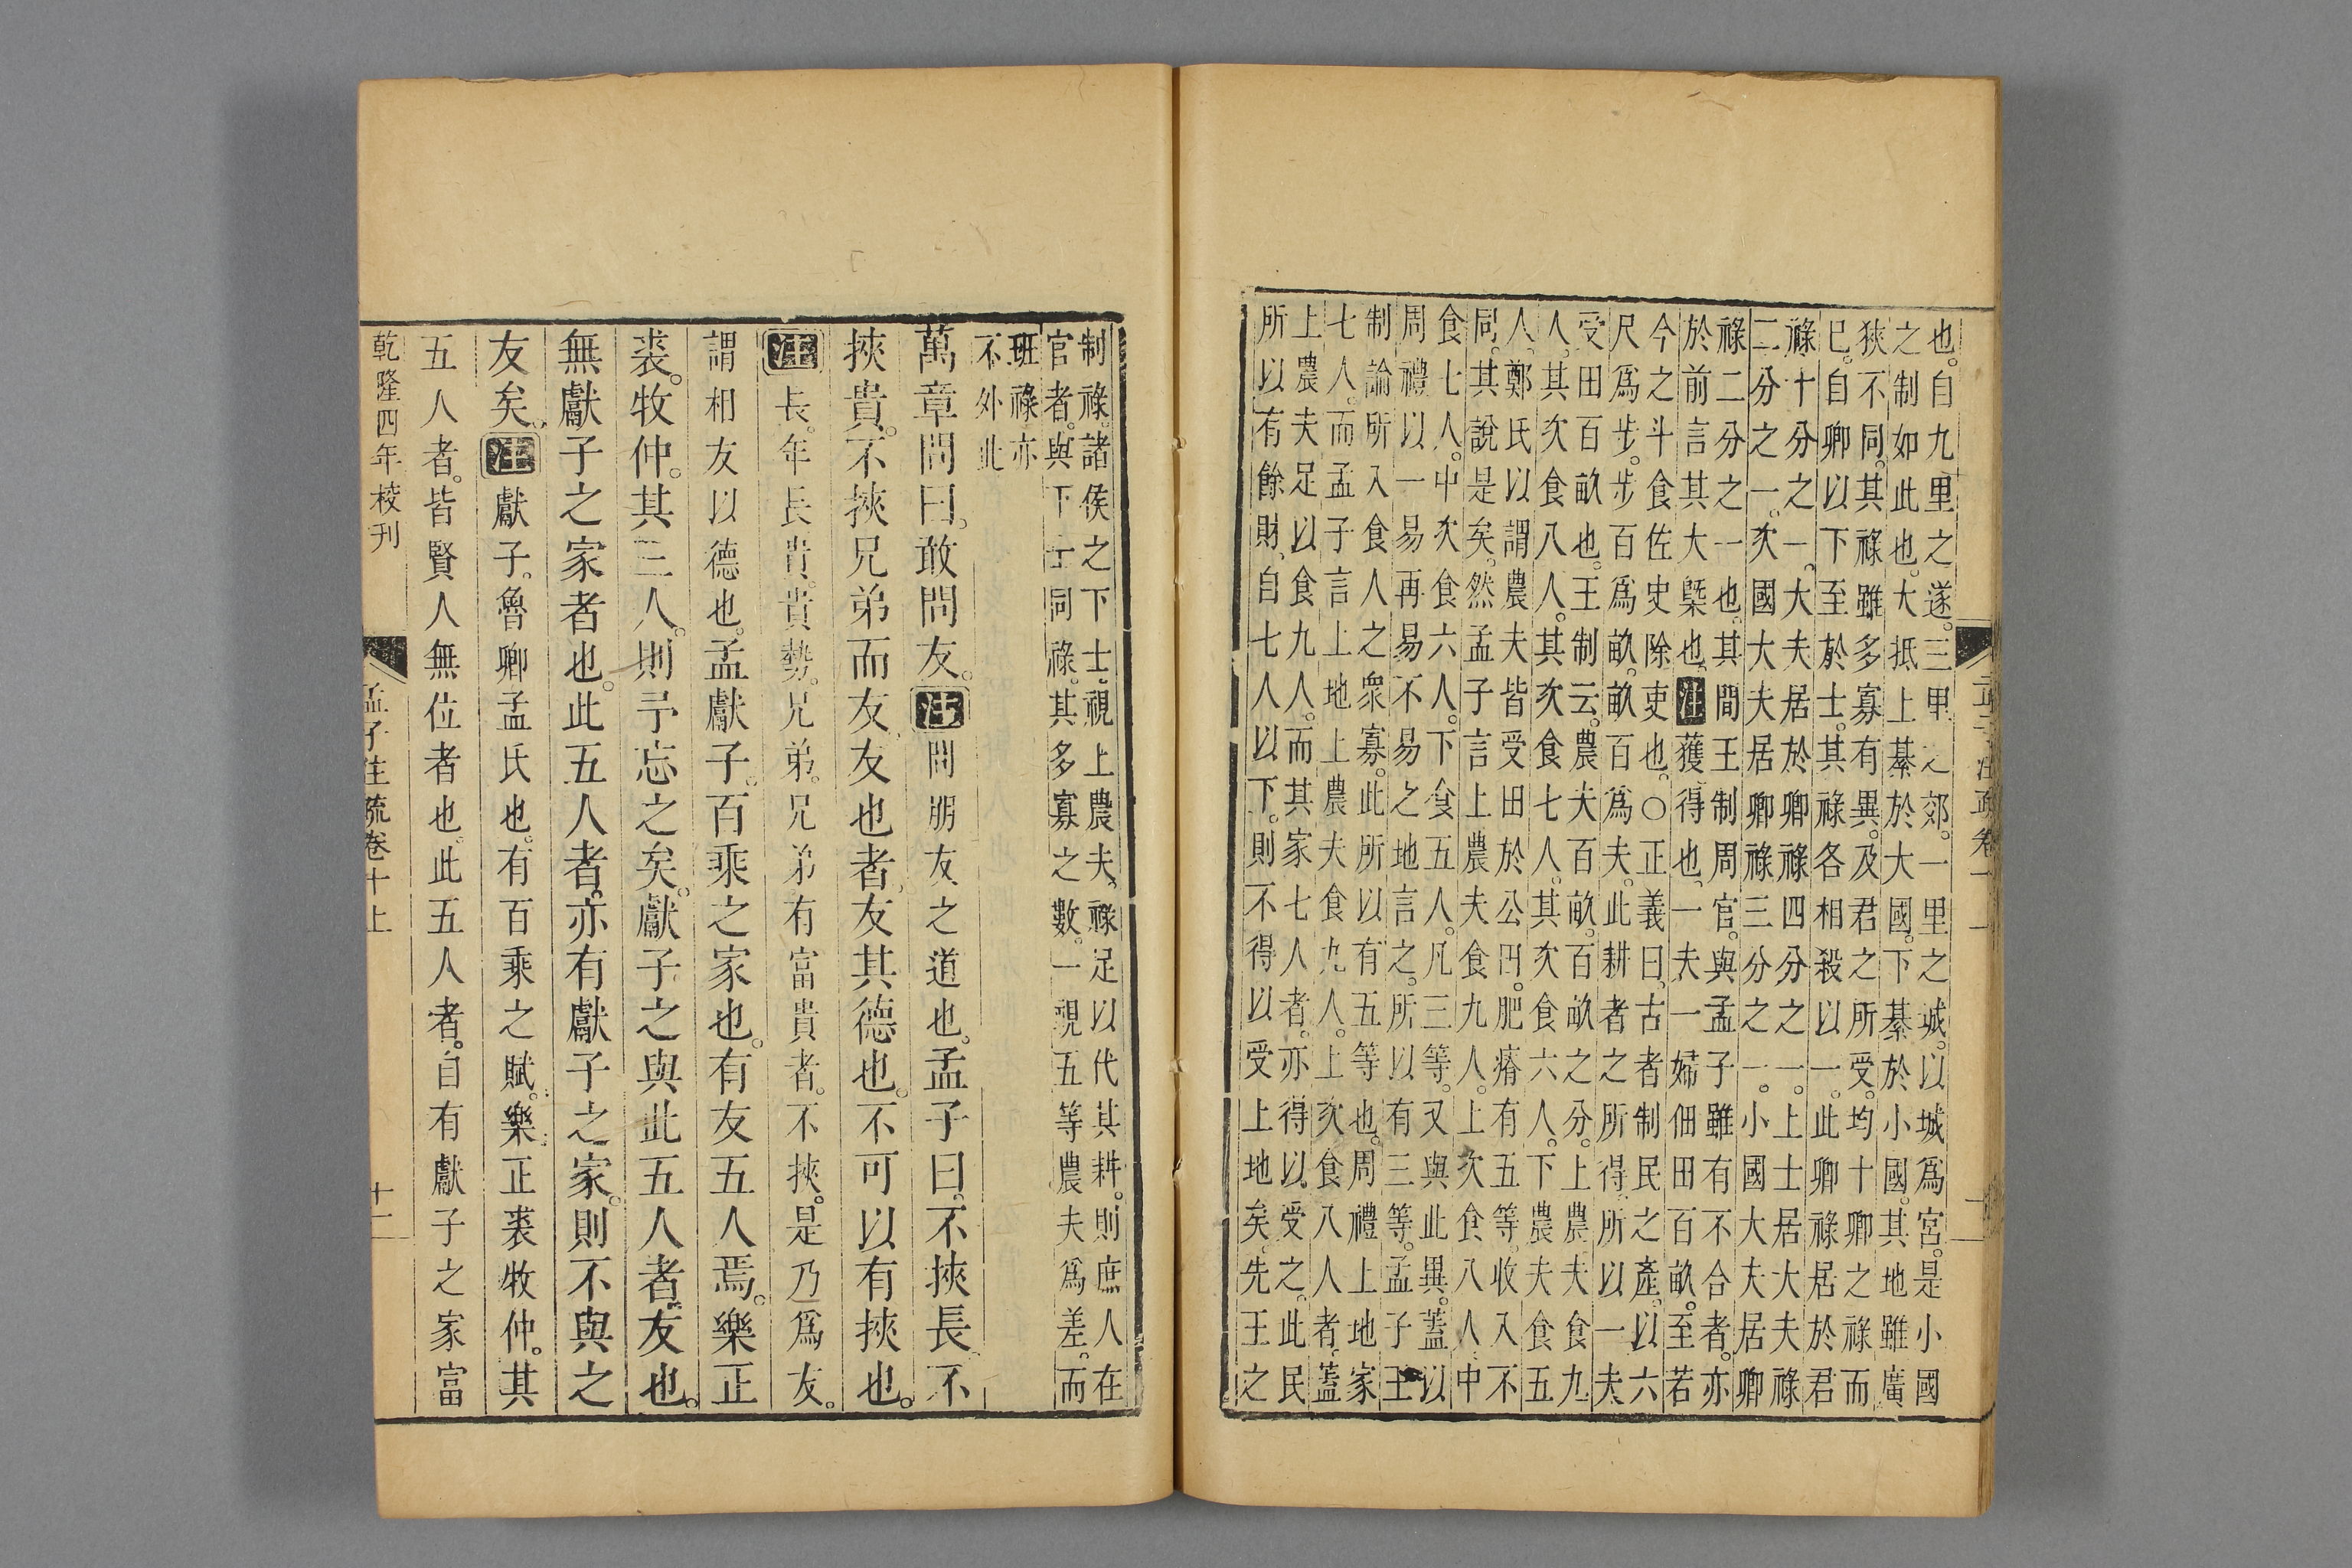 也。自九里之遂。三里之郊。一里之城。以城爲宮。是小國
之制如此也。大抵上綦於大國。下綦於小國。其地雖廣
狹不同。其祿雖多寡有異。及君之所受。均十卿之祿而
已。自卿以下至於士。其祿各相殺以一。此卿祿居於君
祿十分之一。大夫居於卿祿四分之一。上士居大夫祿
二分之一。次國大夫居卿祿三分之一。小國大夫居卿
祿二分之一也。其間王制周官。與孟子雖有不合者。亦
於前言其大槩也。注獲得也。一夫一婦佃田百畝。至若
今之斗食佐史除吏也。○正義曰。古者制民之產。以六
尺爲步。步百爲畝。畝百爲夫。此耕者之所得。所以一夫
受田百畝也。王制云。農夫百畝。百畝之分。上農夫食九
人。其次食八人。其次食七人。其次食六人。下農夫食五
人。鄭氏以謂農夫皆受田於公田。肥瘠有五等。收入不
同。其說是矣。然孟子言上農夫食九人。上次食八人。中
食七人。中次食六人。下食五人。凡三等。又與此異。蓋以
周禮以一易再易不易之地言之。所以有三等。孟子王
制論所入食人之衆寡。此所以有五等也。周禮上地家
七人。而孟子言上地上農夫食九人。上次食八人者。蓋
上農夫足以食九人。而其家七人者。亦得以受之。此民
所以有餘財。自七人以下。則不得以受上地矣。先王之
制祿。諸侯之下士。視上農夫。祿足以代其耕。則庶人在
官者。與下士同祿。其多寡之數。一視五等農夫爲差。而
班祿亦
不外此
萬章問曰。敢問友。注問朋友之道也。孟子曰。不挾長。不
挾貴。不挾兄弟而友。友也者。友其德也。不可以有挾也。
注長。年長。貴。貴勢。兄弟。兄弟有富貴者。不挾。是乃爲友。
謂相友以德也。孟獻子。百乘之家也。有友五人焉。樂正
裘。牧仲。其三人。則予忘之矣。獻子之與此五人者。友也。
無獻子之家者也。此五人者。亦有獻子之家。則不與之
友矣。注獻子。魯卿孟氏也。有百乘之賦。樂正裘牧仲。其
五人者。皆賢人無位者也。此五人者。自有獻子之家富
乾隆四年校刊
孟子注疏卷十上
十一